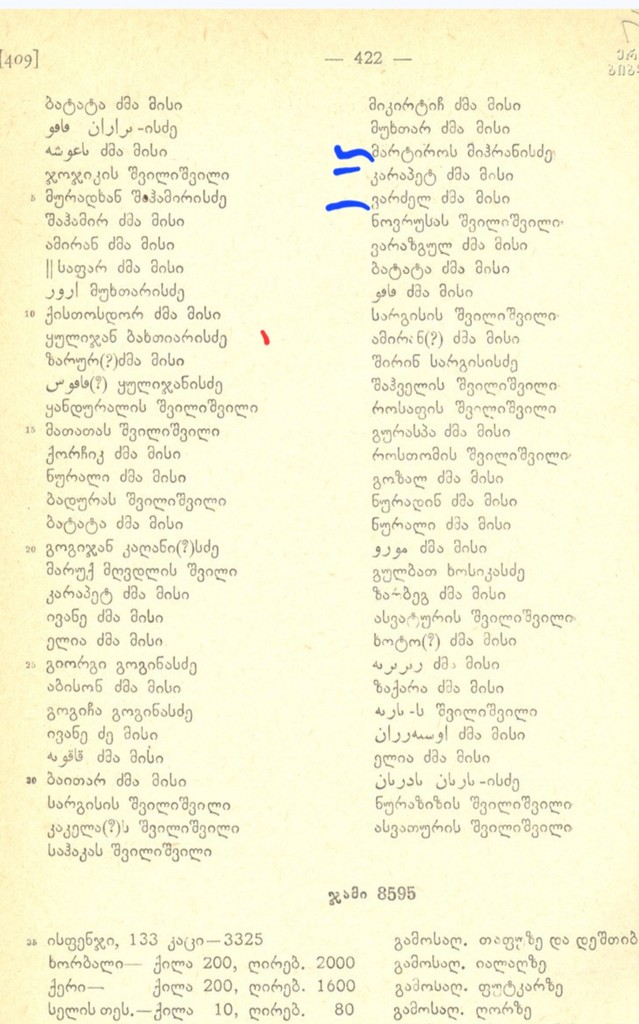 [409]
— 422 —
ბატატა ძმა მისი
ىراران ڡاڡو -ისძე
ძმა მისი
ჯოჯიკის შვილიშვილი
5 მურადხან შაჰამირისძე
შაჰამირ ძმა მისი
ამირან ძმა მისი
|| საფარ ძმა მისი
ارور მუხთარისძე
10 ქისთოსდორ ძმა მისი
ყულიჯან ბახთიარისძე
ზარურ(?)ძმა მისი
ڡاڡوس(?) ყულიჯანისძე
ყანდურალის შვილიშვილი
15 მათათას შვილიშვილი
ქორჩიკ ძმა მისი
ნურალი ძმა მისი
ბადურას შვილიშვილი
ბატატა ძმა მისი
20 გოგიჯან კაღანი(?)სძე
მარუქ მღვდლის შვილი
კარაპეტ ძმა მისი
ივანე ძმა მისი
ელია ძმა მისი
25 გიორგი გოგინასძე
აბისონ ძმა მისი
გოგიჩა გოგინასძე
ივანე ძე მისი
ძმა მისი
30 ბაითარ ძმა მისი
სარგისის შვილიშვილი
კაკელა(?)ს შვილიშვილი
საჰაკას შვილიშვილი
მიკირტიჩ ძმა მისი
მუხთარ ძმა მისი
მარტიროს მიჰრანისძე
კარაპეტ ძმა მისი
ვარძელ ძმა მისი
ნოვრუსას შვილიშვილი
ვარაზგულ ძმა მისი
ბატატა ძმა მისი
ڡاڡو ძმა მისი
სარგისის შვილიშვილი
ამირან(?) ძმა მისი
შირინ სარგისისძე
შაჰველის შვილიშვილი
როსაფის შვილიშვილი
გურასპა ძმა მისი
როსთომის შვილიშვილი
გოზალ ძმა მისი
ნურადინ ძმა მისი
ნურალი ძმა მისი
مورو ძმა მისი
გულბათ ხოსიკასძე
ზარბეგ ძმა მისი
ასვატურის შვილიშვილი
ხოტო(?) ძმა მისი
ძმა მისი
ზაქარა ძმა მისი
-ს შვილიშვილი
ძმა მისი
ელია ძმა მისი
-ისძე
ნურაზიზის შვილიშვილი
ასვათურის შვილიშვილი
ჯამი 8595
35 ისფენჯი, 133 კაცი—3325
ხორბალი— ქილა 200, ღირებ. 2000
ქერი— ქილა 200, ღირებ. 1600
სელის თეს.—ქილა 10, ღირებ. 80
გამოსაღ. თაფუზე და დეშთიბ
გამოსაღ. იალაღზე
გამოსაღ. ფუტკარზე
გამოსაღ. ღორზე